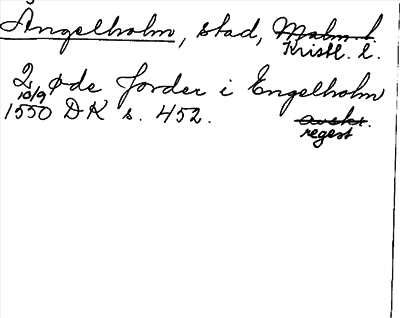 Ängelholm, stad, Malm. l.
Kristl. l.
2 øde Jorder i Engelholm
10/9
1550 DK s. 452. avskr.
regest